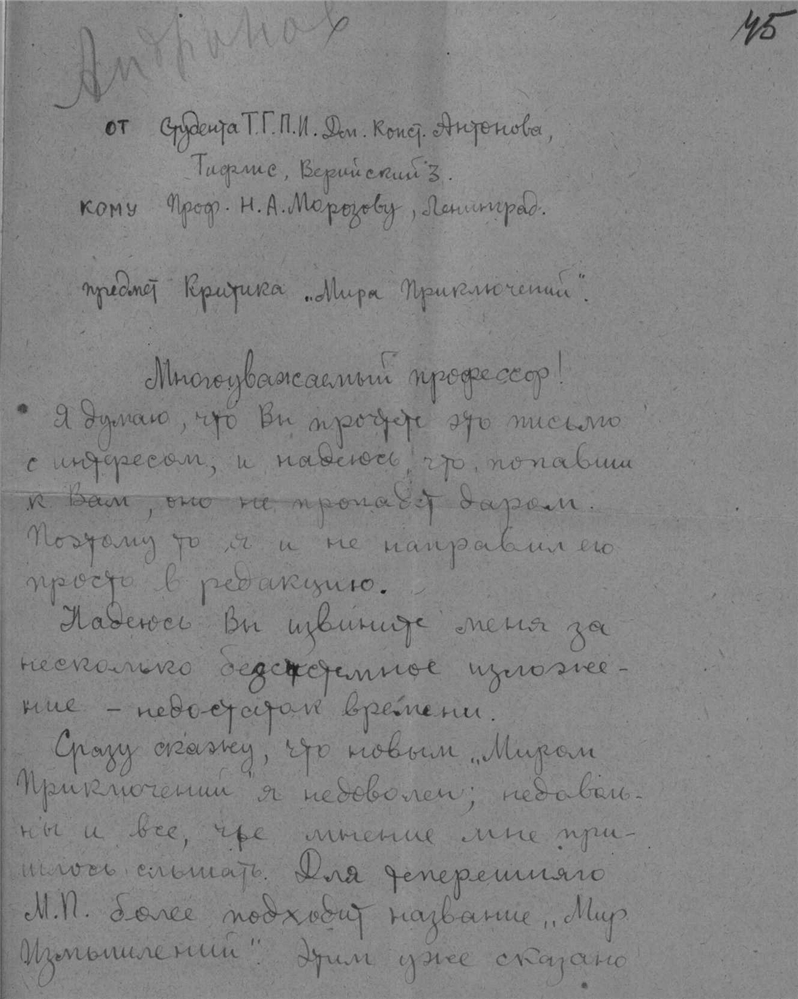 45
Андронов
от студента Т.Г.П.И. Дм. Конст. Антонова,
Тифлис, Верийский 3.
кому Проф. Н.А. Морозову, Ленинград.
предмет Критика „Мира Приключений“.
Многоуважаемый профессор!
Я думаю, что Вы прочтете это письмо
с интересом, и надеюсь, что, попавши
к Вам, оно не пропадет даром.
Поэтому то я и не направил его
просто в редакцию.
Надеюсь Вы извините меня за
несколько безсистемное изложе-
ние – недостаток времени.
Сразу скажу, что новым „Миром
Приключений“ я недоволен; недоволь-
ны и все, чье мнение мне при-
шлось слышать. Для теперешняго
М.П. более подходит название „Мир
Измышлений“. Этим уже сказано